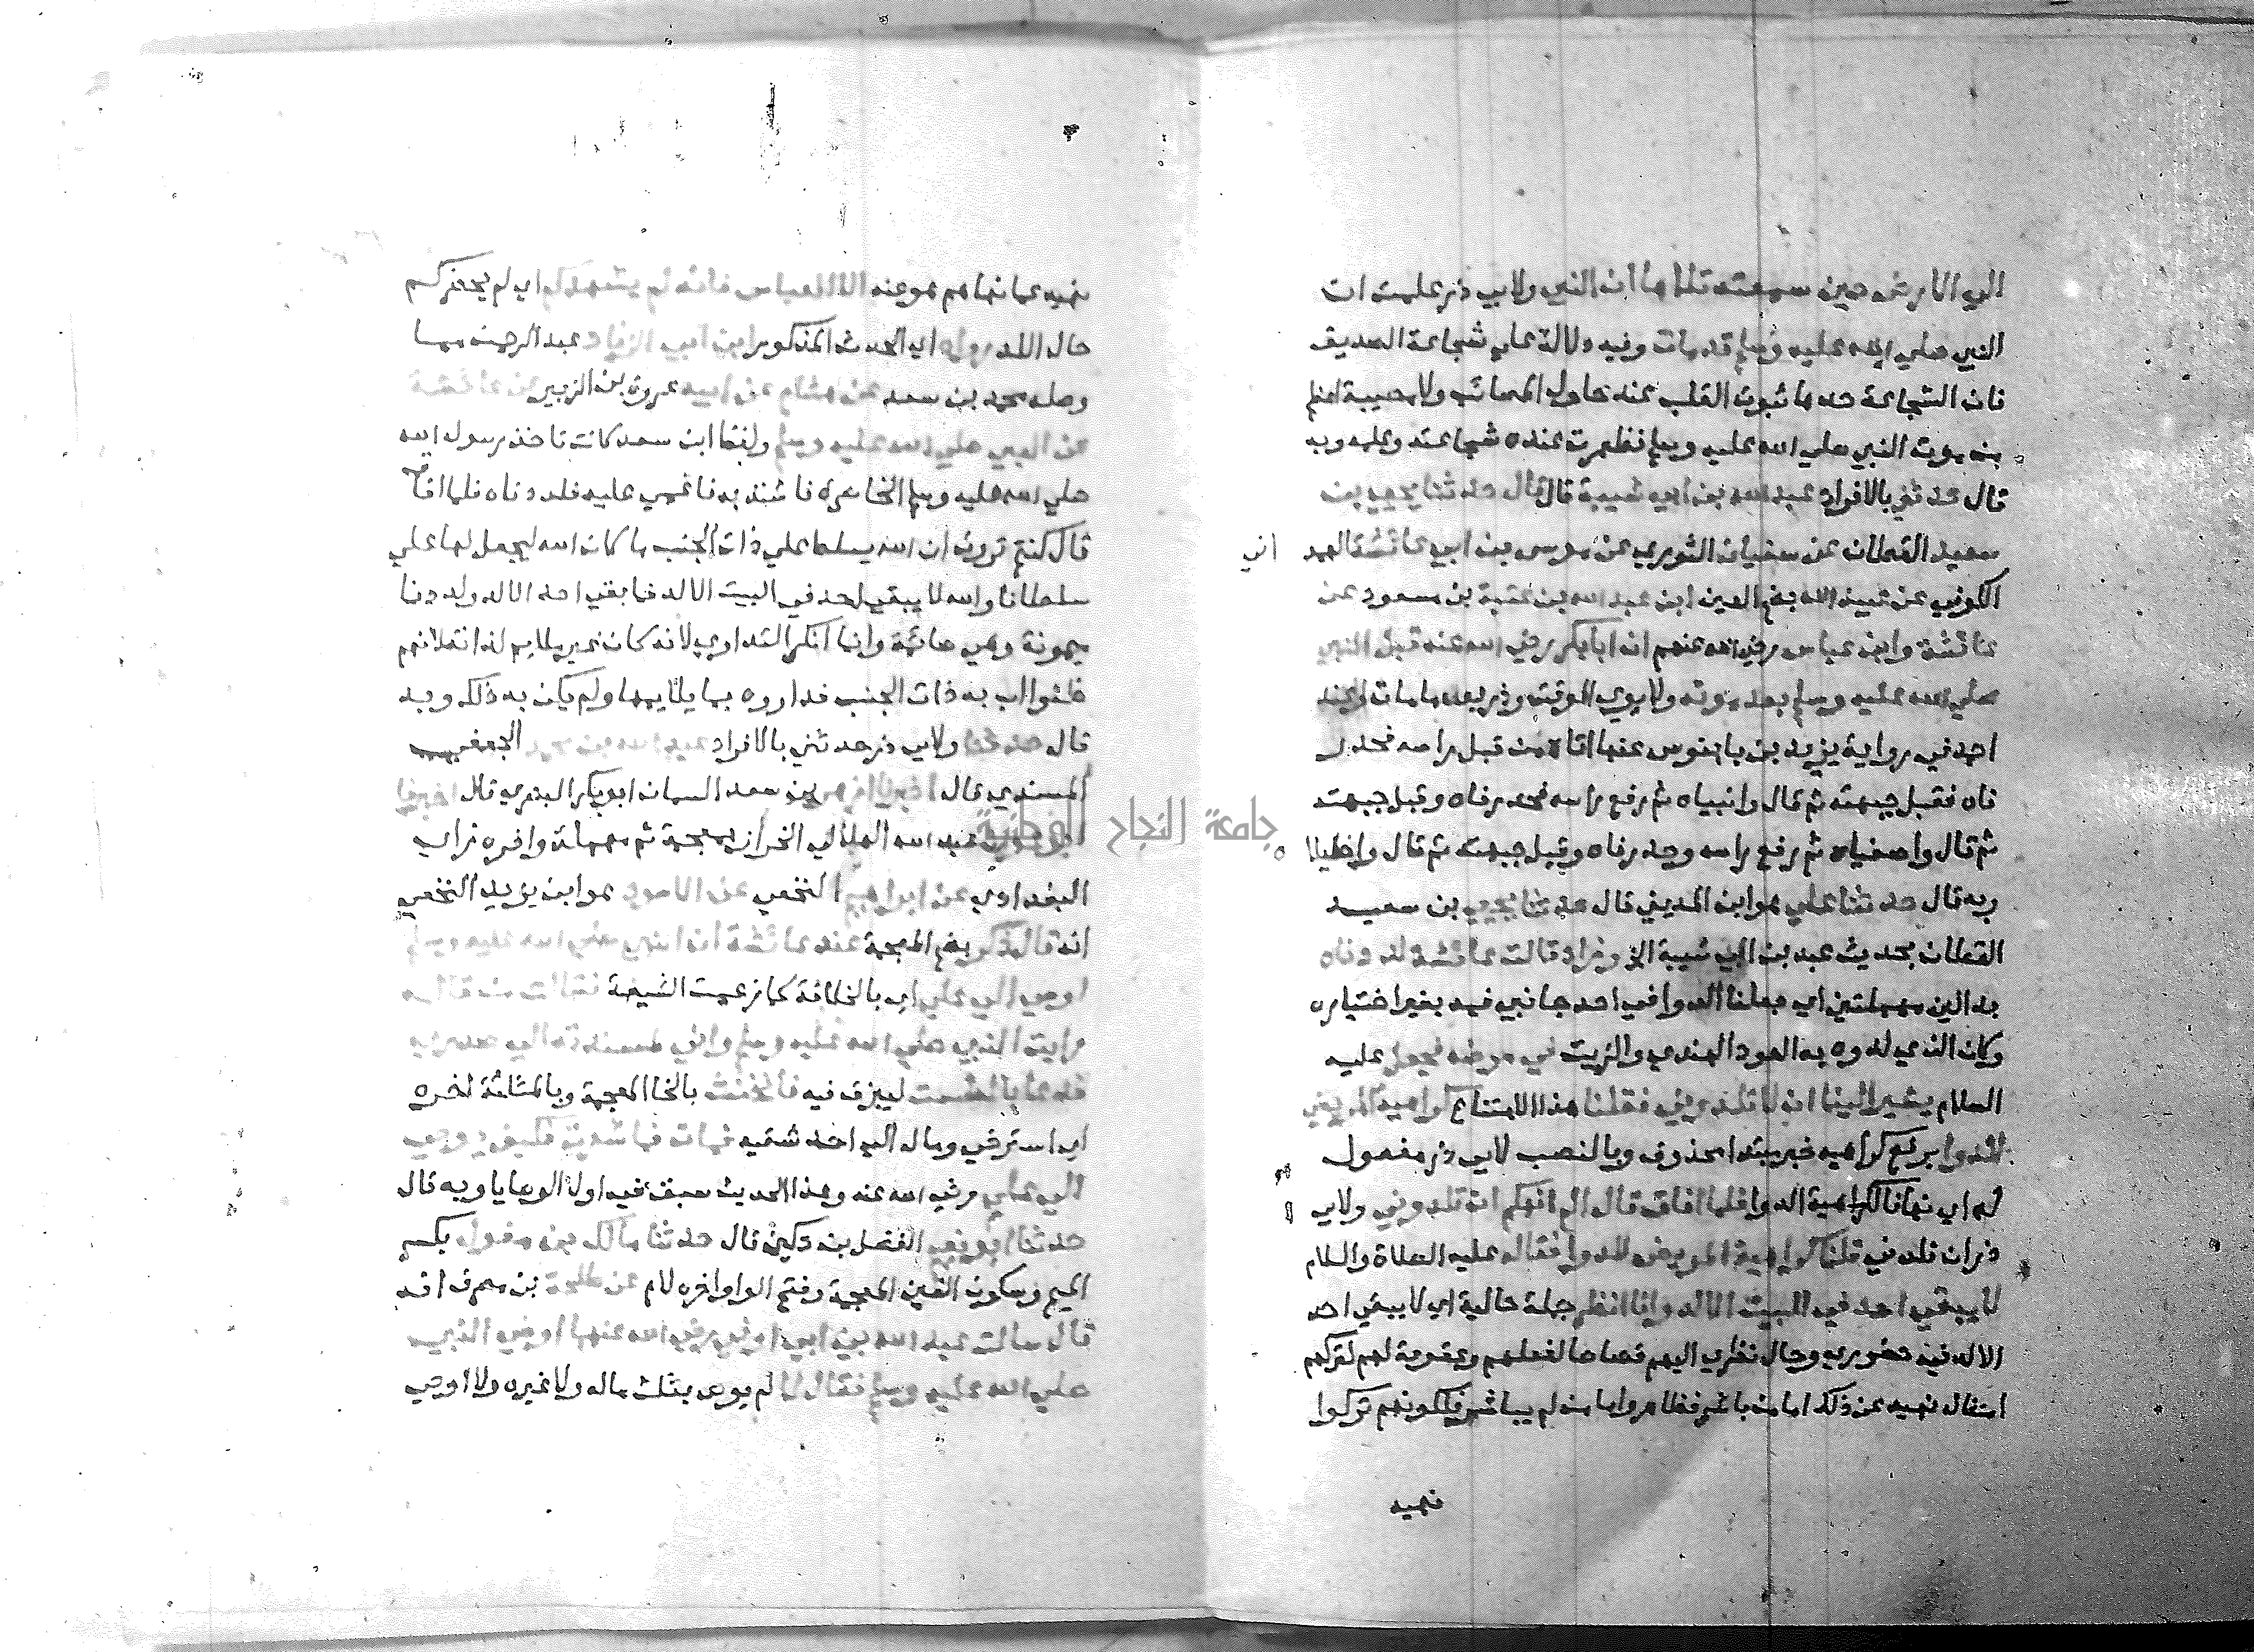 الي الارض حين سمعته تلاها ان النبي ولابي ذر علمت ان
النبي صلي الله عليه وسلم قد مات وفيه دلالة علي شجاعة الصديق
فان الشجاعة حدها ثبوت القلب عند حلول المصائب ولا مصيبة اعظم
من موت النبي صلي الله عليه وسلم فظهرت عنده شجاعته وعلمه وبه
قال حدثني بالافراد عبد الله بن ابي شيبة قال حدثنا يحيي بن
سعيد القطان عن سفيان الثوري عن موسي بن ابي عائشة الهمداني
الكوفي عن عبيد الله بضم العين ابن عبد الله بن عتبة بن مسعود عن
عائشة وابن عباس رضي الله عنهم ان ابا بكر رضي الله عنه قبل النبي
صلي الله عليه وسلم بعد موته ولابوي الوقت وذر بعد ما مات وعند
احمد في رواية يزيد بن بابنوس عنها اتاه من قبل راسه فحدر
فاه فقبل جبهته ثم قال وانبياه ثم رفع راسه فحدر فاه وقبل جبهته
ثم قال واصفياه ثم رفع راسه وحدر فاه وقبل جبهته ثم قال واخليلا
وبه قال حدثنا علي هو ابن المديني قال حدثنا يحيي بن سعيد
القطان بحديث عبد بن ابي شيبة الخ وزاد قالت عائشة لددناه
بدالين مهملتين اي جعلنا الدوا في احد جانبي فيه بغير اختياره
وكان الذي لدوه به العود الهندي والزيت في مرضه فجعل عليه
السلام يشير الينا ان لا تلدوني فقلنا هذا الامتناع كراهية المريض
للدوا برفع كراهية خبر مبتدا محذوف وبالنصب لابي ذر مفعول
له اي نهانا لكراهية الدوا فلما افاق قال الم انهكم ان تلدوني ولابي
ذر ان تلدني قلنا كراهية المريض للدوا فقال عليه الصلاة والسلام
لا يبقي احد في البيت الا لد وانا انظر جملة حالية اي لا يبقي احد
الا لد في حضوري وحال نظري اليهم قصاصا لفعلهم وعقوبة لهم لتركهم
امتثال نهيه عن ذلك اما من باشر فظاهر واما من لم يباشر فلكونهم تركوا
نهيه
نهيه عما نهاهم هو عنه الا العباس فانه لم يشهدكم اي لم يحضركم
حال اللد رواه اي الحديث المذكور ابن ابي الزناد عبد الرحمن مما
وصله محمد بن سعد عن هشام عن ابيه عروة بن الزبير عن عائشة
عن النبي صلي الله عليه وسلم ولفظ ابن سعد كانت تاخذ رسول الله
صلي الله عليه وسلم الخاصرة فاشتد به فاغمي عليه فلددناه فلما افاق
قال كنتم ترون ان الله يسلط علي ذات الجنب ما كان الله ليجعل لها علي
سلطانا والله لا يبقي احد في البيت الا لد فما بقي احد الا لد ولددنا
ميمونة وهي صائمة وانما انكر التداوي لانه كان غير ملايم له لانهم
ظنوا ان به ذات الجنب فداووه بما يلايمها ولم يكن به ذلك وبه
قال حدثنا ولابي ذر حدثني بالافراد عبد الله بن محمد الجعفي
المسندي قال اخبرنا ازهر بن سعد السمان ابو بكر البصري قال اخبرنا
ابن عون عبد الله الهلالي الخراز بمعجمة ثم مهملة واخره زاي
البغدادي عن ابراهيم النخعي عن الاسود هو ابن يزيد النخعي
انه قال ذكر بضم المعجمة عند عائشة ان النبي صلي الله عليه وسلم
اوصي الي علي اي بالخلافة كما زعمت الشيعة فقالت من قاله
رايت النبي صلي الله عليه وسلم واني لمسندته الي صدري
فدعا بالطست ليبزق فيه فانخنث بالخا المعجمة وبالمثلثة اخره
اي استرخي ومال الي احد شقيه فمات فما شعرت فكيف اوصي
الي علي رضي الله عنه وهذا الحديث سبق في اول الوصايا وبه قال
حدثنا ابو نعيم الفضل بن دكين قال حدثنا مالك بن مغول بكسر
الميم وسكون الغين المعجمة وفتح الواو اخره لام عن طلحة بن مصرف انه
قال سالت عبد الله بن ابي اوفي رضي الله عنهما اوصي النبي
صلي الله عليه وسلم فقال لا لم يوص بثلث ماله ولا غيره ولا اوصي
جامعة النجاح الوطنية